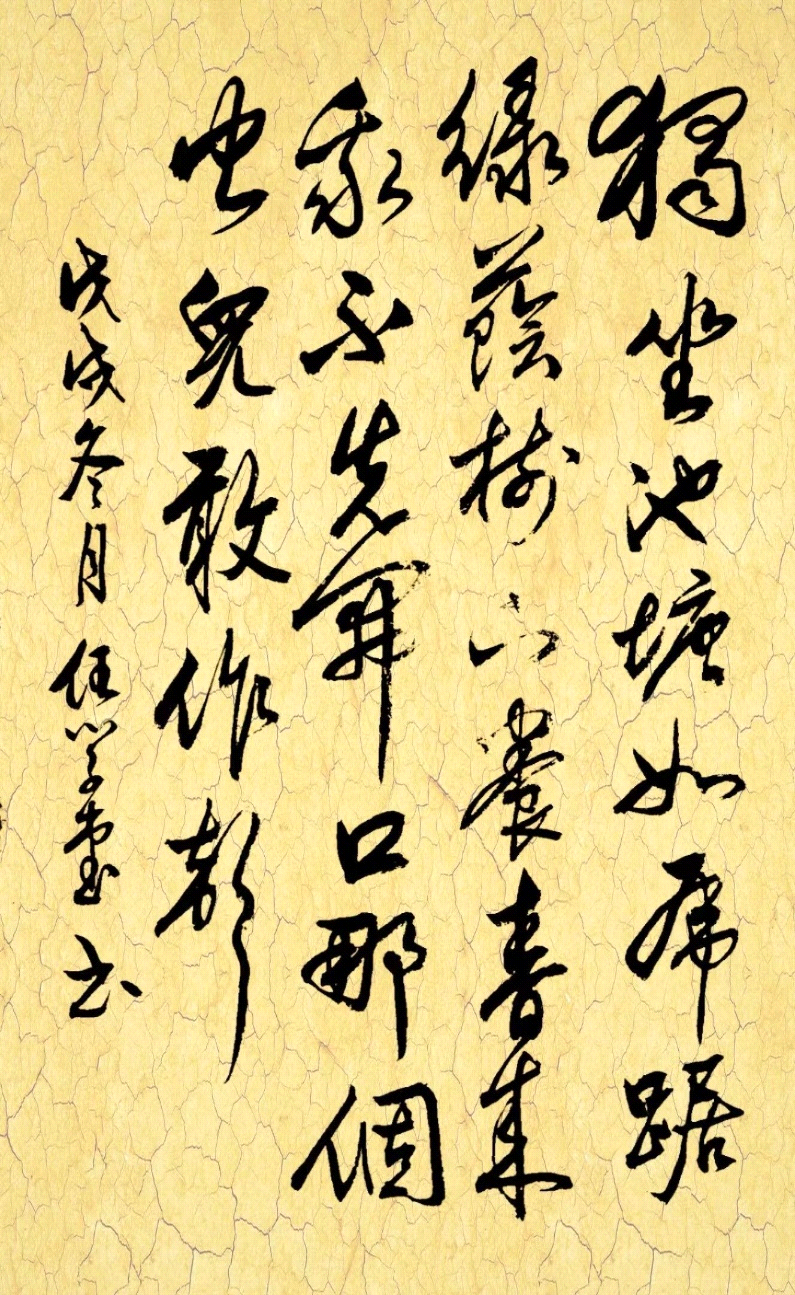 獨坐池塘如虎踞
綠蔭樹下養春來
我不先開口那個
虫兒敢作聲
戊戌冬月任学书